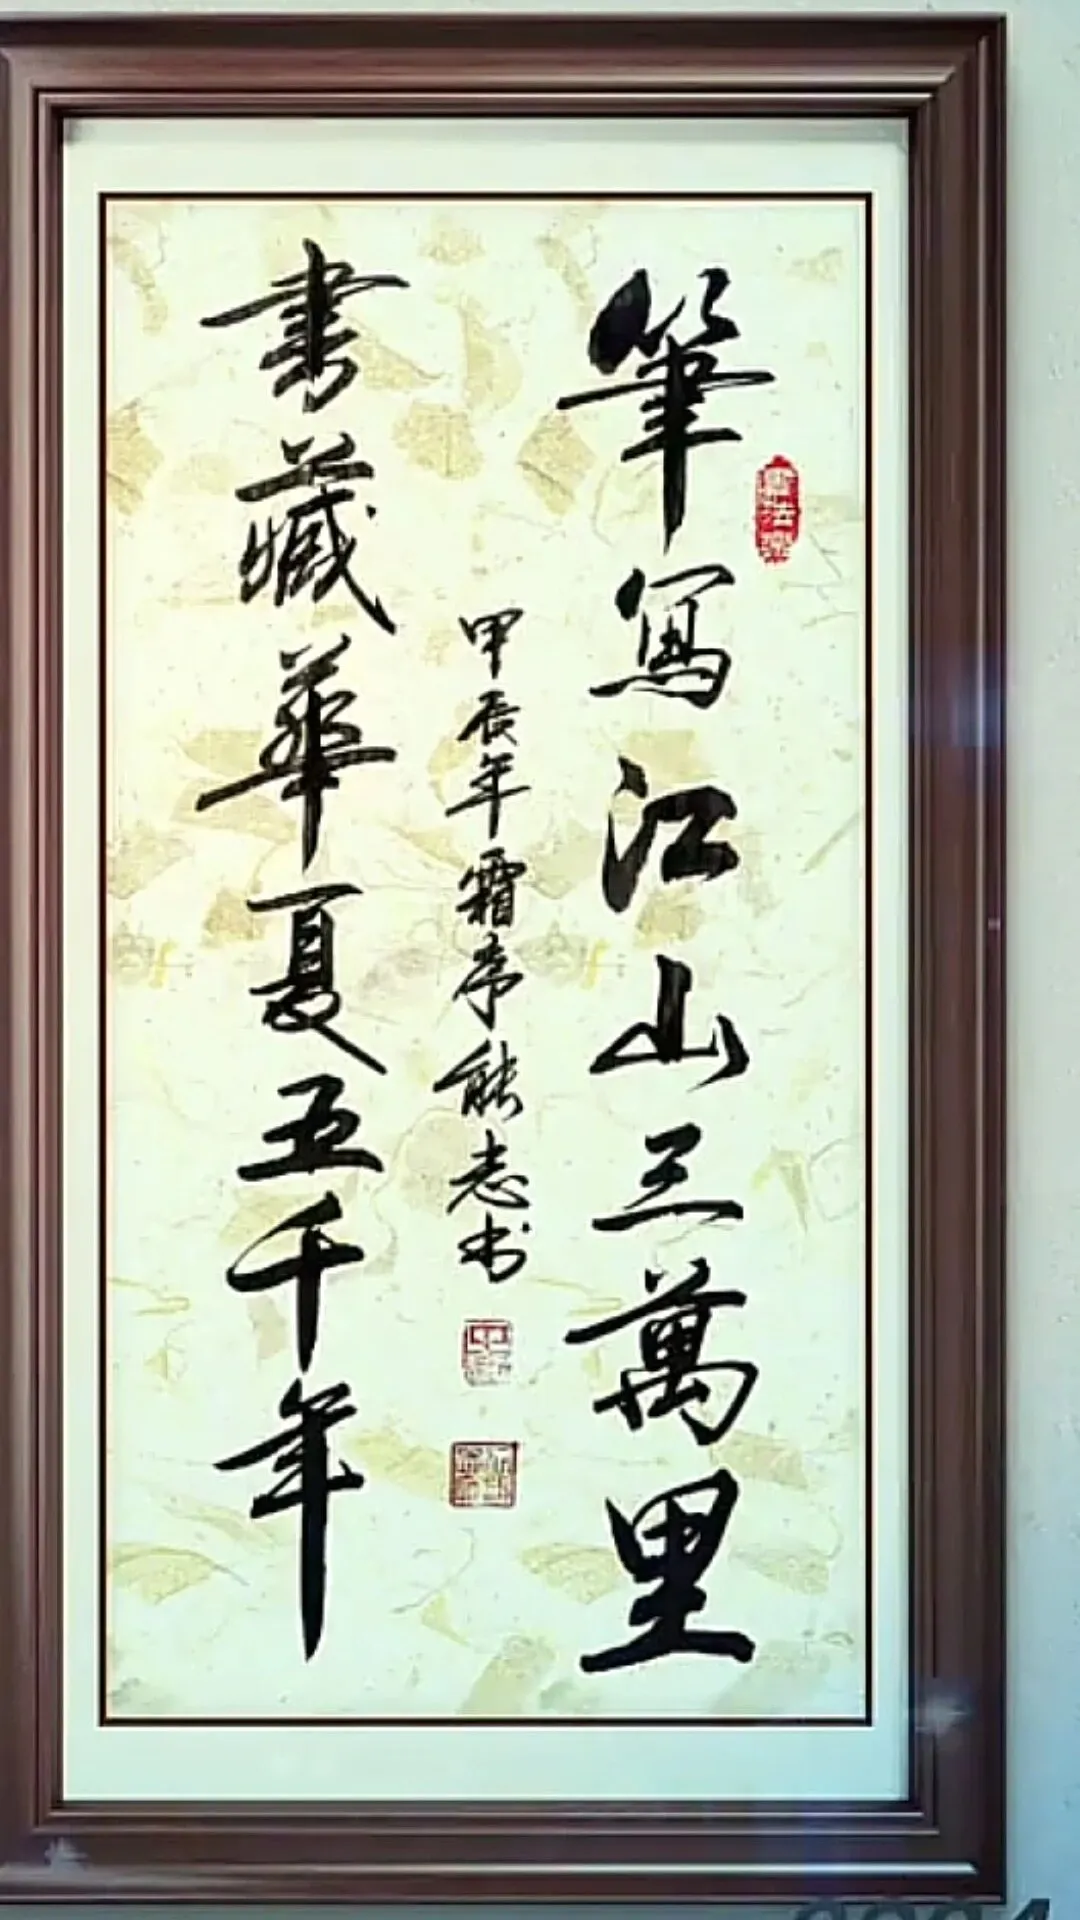 筆寫江山三萬里
書藏華夏五千年
甲辰年霜序能志书